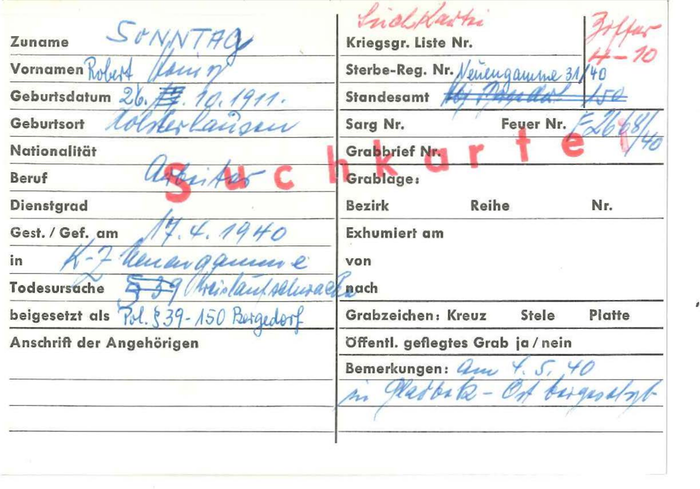 Suchkartei
Ziffer
4-10
Zuname SONNTAG
Kriegsgr. Liste Nr.
Vornamen Robert
Sterbe-Reg. Nr. Neuengamme 31/40
Geburtsdatum 26. 10. 1911.
Standesamt 150
Geburtsort Holsterhausen
Sarg Nr. Feuer Nr. F 2668/40
Nationalität
Grabbrief Nr.
Suchkarte!
Beruf Arbeiter
Grablage:
Dienstgrad
Bezirk Reihe Nr.
Gest./Gef. am 17.4.1940
Exhumiert am
in K-Z Neuengamme
von
Todesursache § 39 Kreislaufschwäche
nach
beigesetzt als Pol. § 39-150 Bergedorf
Grabzeichen: Kreuz Stele Platte
Anschrift der Angehörigen
Öffentl. gepflegtes Grab ja/nein
Bemerkungen: am 4.5.40
in Gladbeck-Ost beigesetzt